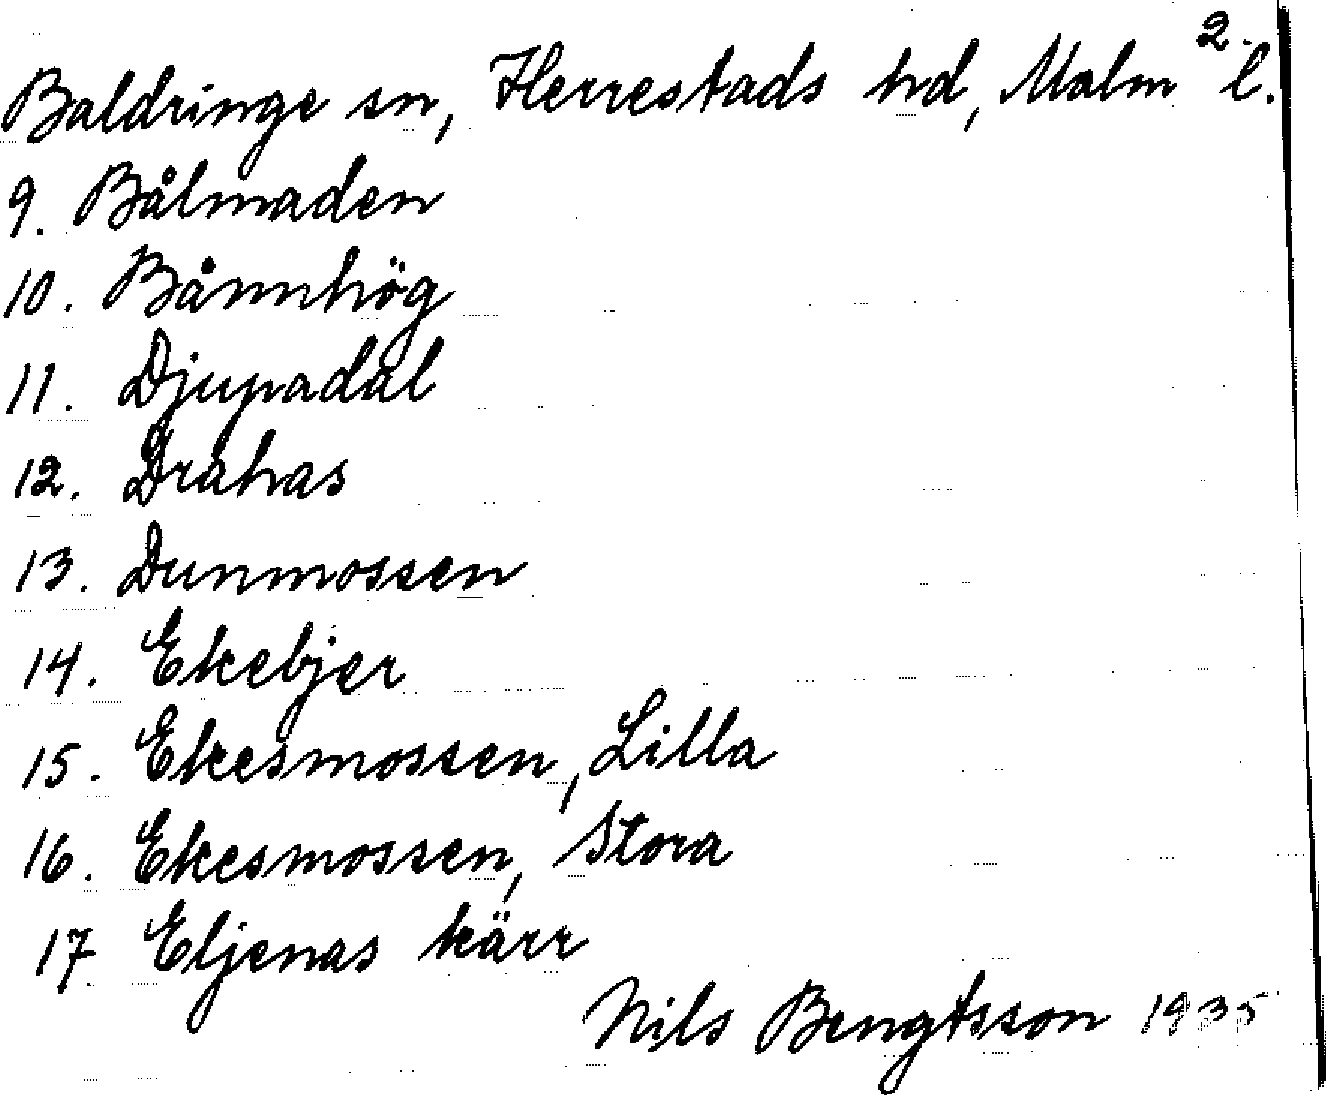 2.
Baldringe sn, Herrestads hd, Malm l.
9. Bålmaden
10. Bånnhög
11. Djupadal
12. Dråhas
13. Dunmossen
14. Ekebjer
15. Ekesmossen, Lilla
16. Ekesmossen, Stora
17. Eljenas kärr
Nils Bengtsson 1935